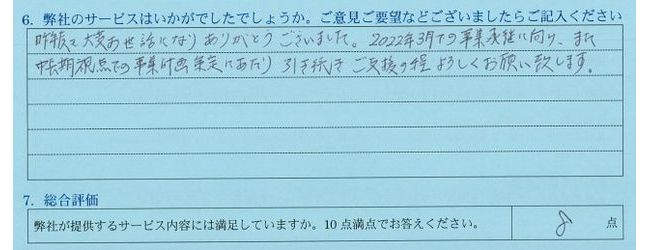 6. 弊社のサービスはいかがでしたでしょうか。ご意見ご要望などございましたらご記入ください
昨年は大変お世話になりありがとうございました。2022年3月での事業承継に向け、また
中長期視点での事業計画策定にあたり引き続きご支援の程よろしくお願い致します。
7. 総合評価
弊社が提供するサービス内容には満足していますか。10点満点でお答えください。 8 点